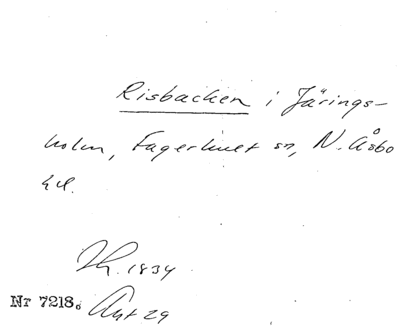 Risbacken i Järings-
holm, Fagerhult sn, N. Åsbo
hd.
1834
Nr 7218. Akt 29